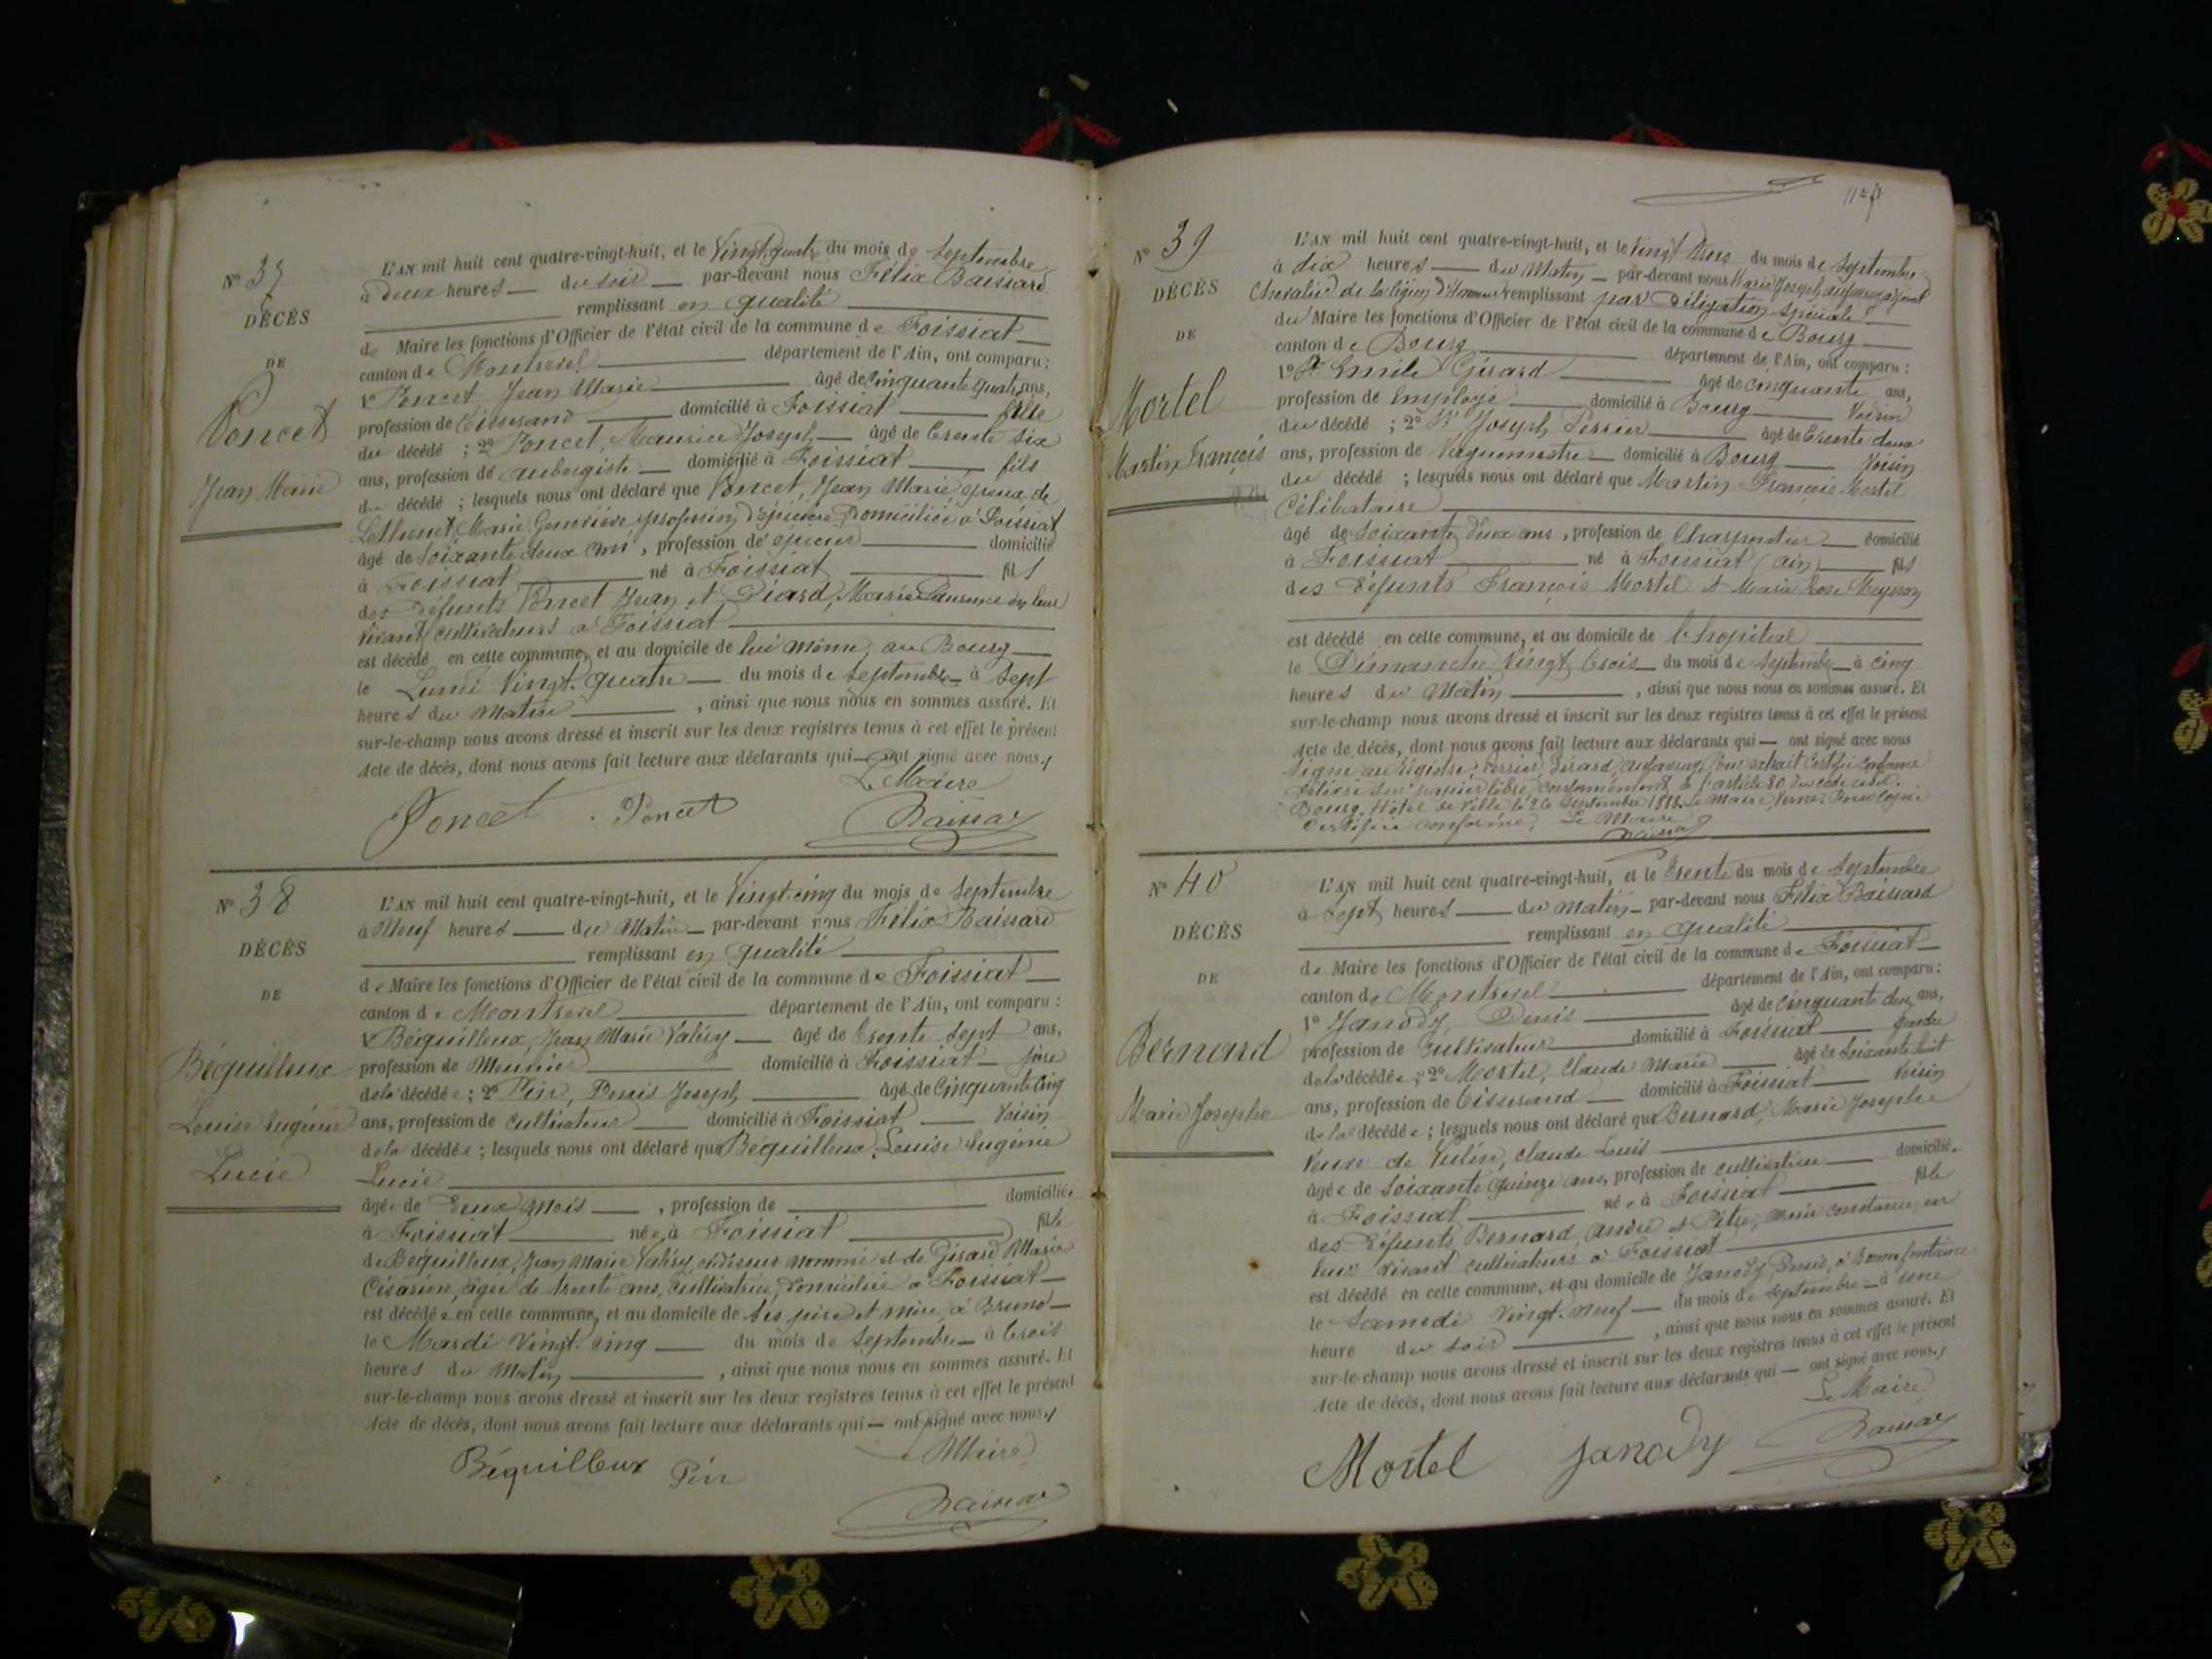 N° 37
DÉCÈS
DE
Poncet
Jean Marie
L'AN mil huit cent quatre-vingt-huit, et le Vingt quatre du mois de Septembre
à Deux heures du soir par-devant nous Félix Baissard
remplissant en qualité
de Maire les fonctions d'Officier de l'état civil de la commune de Foissiat
canton de Montrevel département de l'Ain, ont comparu :
1° Poncet Jean Marie âgé de Cinquante quatre ans,
profession de Tisserand domicilié à Foissiat
du décédé ; 2° Poncet, Maurice Joseph âgé de trente six
ans, profession de aubergiste domicilié à Foissiat fils
du décédé ; lesquels nous ont déclaré que Poncet, Jean Marie, époux de
Marie Geneviève profession d'épicière, domiciliée à Foissiat
âgé de soixante deux ans, profession de épicier domicilié
à Foissiat né à Foissiat fils
des défunts Poncet Jean et Diard, Marie Laurence en leur
vivant cultivateurs à Foissiat
est décédé en cette commune, et au domicile de lui même, au Bourg
le Lundi Vingt-quatre du mois de Septembre à Sept
heures du matin, ainsi que nous nous en sommes assuré. Et
sur-le-champ nous avons dressé et inscrit sur les deux registres tenus à cet effet le présent
Acte de décès, dont nous avons fait lecture aux déclarants qui — ont signé avec nous.
Le Maire
Poncet Poncet Baissard
N° 38
DÉCÈS
DE
Béguilleux
Louise Eugénie
Lucie
L'AN mil huit cent quatre-vingt-huit, et le Vingt-cinq du mois de Septembre
à Neuf heures du Matin par-devant nous Félix Baissard
remplissant en qualité
de Maire les fonctions d'Officier de l'état civil de la commune de Foissiat
canton de Montrevel département de l'Ain, ont comparu :
1° Béguilleux, Jean Marie Valéry âgé de trente sept ans,
profession de Meunier domicilié à Foissiat père
de la décédée ; 2° Pin, Denis Joseph âgé de Cinquante cinq
ans, profession de cultivateur domicilié à Foissiat voisin
de la décédée ; lesquels nous ont déclaré que Béguilleux, Louise Eugénie
Lucie
âgée de Deux mois, profession de domiciliée
à Foissiat née à Foissiat fille
de Béguilleux, Jean Marie Valéry, ci-dessus nommé et de Girard Marie
Césarine, âgée de trente ans, cultivatrice, domiciliée à Foissiat
est décédée en cette commune, et au domicile de ses père et mère, à Bruno
le Mardi Vingt-cinq du mois de Septembre à trois
heures du Matin, ainsi que nous nous en sommes assuré. Et
sur-le-champ nous avons dressé et inscrit sur les deux registres tenus à cet effet le présent
Acte de décès, dont nous avons fait lecture aux déclarants qui — ont signé avec nous.
Maire
Béguilleux Pin
Baissard
N° 39
DÉCÈS
DE
Mortel
Martin François
L'AN mil huit cent quatre-vingt-huit, et le Vingt trois du mois de Septembre
à dix heures du Matin par-devant nous Marie Joseph adjoint
Chevalier de la légion d'Honneur remplissant par Délégation spéciale
du Maire les fonctions d'Officier de l'état civil de la commune de Bourg
canton de Bourg département de l'Ain, ont comparu :
1° Sr Emile Girard âgé de cinquante ans,
profession de Employé domicilié à Bourg Voisin
du décédé ; 2° Sr Joseph Perrier âgé de trente deux
ans, profession de Vaguemestre domicilié à Bourg Voisin
du décédé ; lesquels nous ont déclaré que Martin François Mortel
Célibataire
âgé de soixante deux ans, profession de Charpentier domicilié
à Foissiat né à Foissiat (ain) fils
des défunts François Mortel et Marie Rose
est décédé en cette commune, et au domicile de l'hopital
le Dimanche Vingt trois du mois de Septembre à cinq
heures du Matin, ainsi que nous nous en sommes assuré. Et
sur-le-champ nous avons dressé et inscrit sur les deux registres tenus à cet effet le présent
Acte de décès, dont nous avons fait lecture aux déclarants qui — ont signé avec nous
Signé au Registre : Perrier, Girard, Pour extrait certifié conforme
délivré sur papier libre, conformément à l'article 80 du code civil.
Bourg, Hôtel de Ville le 26 Septembre 1888. Le Maire,
Certifié conforme, Le Maire
Baissard
N° 40
DÉCÈS
DE
Bernard
Marie Josephe
L'AN mil huit cent quatre-vingt-huit, et le trente du mois de Septembre
à Sept heures du matin par-devant nous Félix Baissard
remplissant en qualité
de Maire les fonctions d'Officier de l'état civil de la commune de Foissiat
canton de Montrevel département de l'Ain, ont comparu :
1° Janody, Denis âgé de Cinquante deux ans,
profession de cultivateur domicilié à Foissiat gendre
de la décédée ; 2° Mortel, Claude Marie âgé de soixante huit
ans, profession de Tisserand domicilié à Foissiat Voisin
de la décédée ; lesquels nous ont déclaré que Bernard, Marie Josephe
Veuve de Vulin, Claude Louis
âgée de soixante quinze ans, profession de cultivatrice domiciliée
à Foissiat née à Foissiat fille
des défunts Bernard, André et Pitre, Marie Constance, en
leur vivant cultivateurs à Foissiat
est décédé en cette commune, et au domicile de Janody, Denis, à Bonnefontaine
le Samedi Vingt-neuf du mois de Septembre à une
heure du soir, ainsi que nous nous en sommes assuré. Et
sur-le-champ nous avons dressé et inscrit sur les deux registres tenus à cet effet le présent
Acte de décès, dont nous avons fait lecture aux déclarants qui — ont signé avec nous.
Le Maire
Mortel Janody Baissard